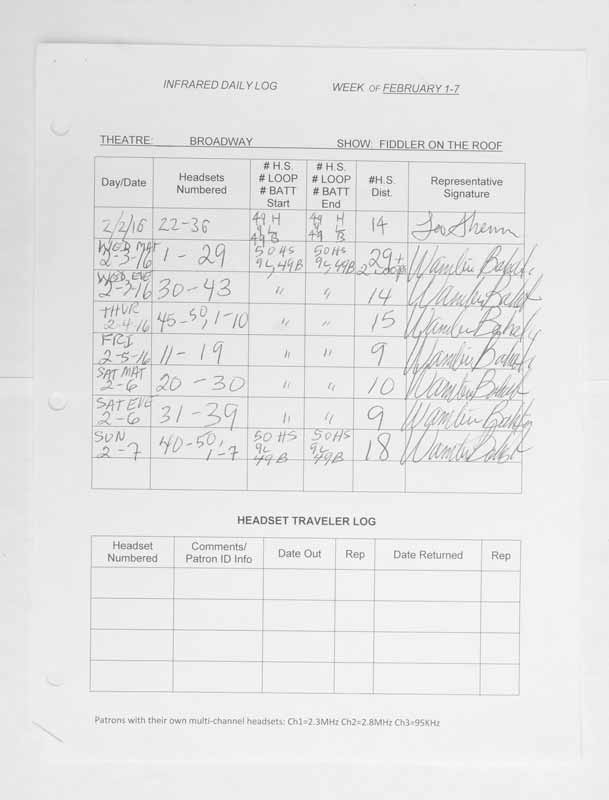 INFRARED DAILY LOG WEEK OF FEBRUARY 1-7
THEATRE: BROADWAY SHOW: FIDDLER ON THE ROOF
Day/Date Headsets Numbered # H.S. # LOOP # BATT Start # H.S. # LOOP # BATT End #H.S. Dist. Representative Signature
2/2/16 22-36 49 H 9L 49 B 49 H 9L 49 B 14
WED MAT 2-3-16 1-29 50HS 9L, 49B 50HS 9L, 49B 29+ 2
WED EVE 2-3-16 30-43 " " 14
THUR 2-4-16 45-50, 1-10 " " 15
FRI 2-5-16 11-19 " " 9
SAT MAT 2-6 20-30 " " 10
SAT EVE 2-6 31-39 " " 9
SUN 2-7 40-50, 1-7 50HS 9L 49B 50HS 9L 49B 18
HEADSET TRAVELER LOG
Headset Numbered Comments/ Patron ID Info Date Out Rep Date Returned Rep
Patrons with their own multi-channel headsets: Ch1=2.3MHz Ch2=2.8MHz Ch3=95KHz